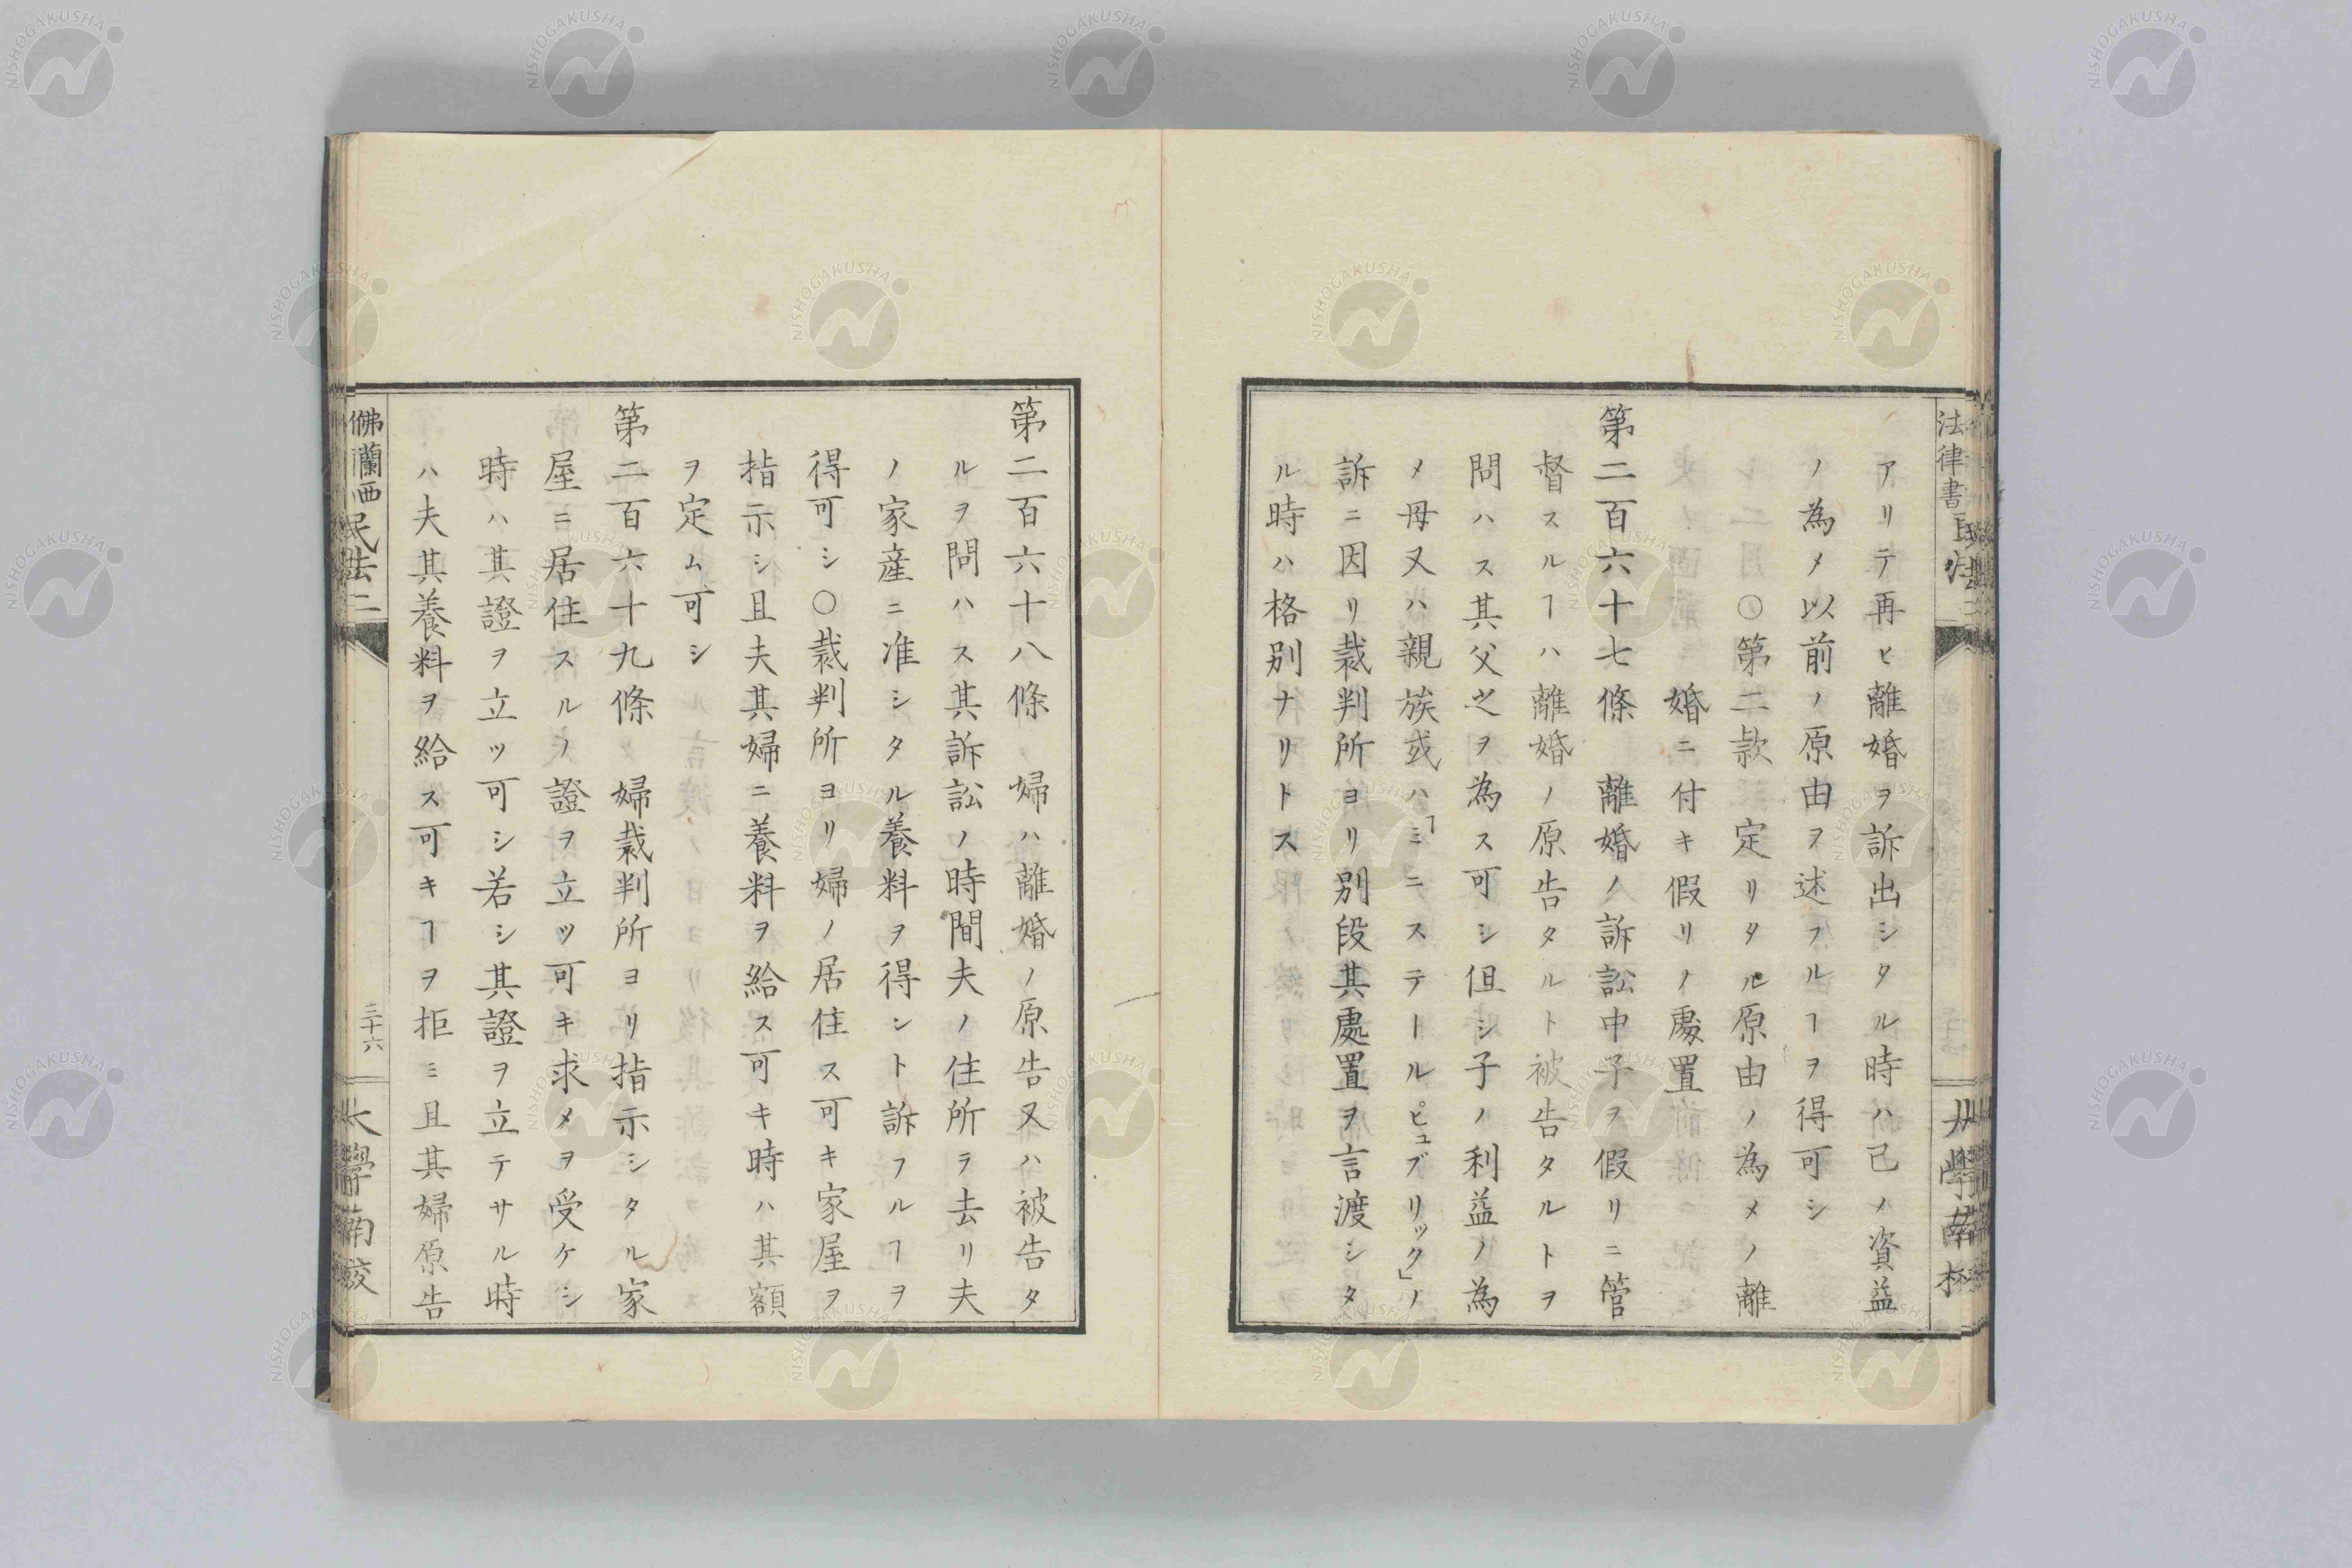 アリテ再ヒ離婚ヲ訴出シタル時ハ己ノ資益
ノ為メ以前ノ原由ヲ述フルヿヲ得可シ
○第二款 定リタル原由ノ為メノ離
婚ニ付キ假リノ處置
第二百六十七條 離婚ノ訴訟中子ヲ假リニ管
督スルヿハ離婚ノ原告タルト被告タルトヲ
問ハス其父之ヲ為ス可シ但シ子ノ利益ノ為
メ母又ハ親族或ハ「ミニステートルピュブリック」ノ
訴ニ因リ裁判所ヨリ別段其處置ヲ言渡シタ
ル時ハ格別ナリトス
第二百六十八條 婦ハ離婚ノ原告又ハ被告タ
ルヲ問ハス其訴訟ノ時間夫ノ住所ヲ去リ夫
ノ家産ニ准シタル養料ヲ得ント訴フルヿヲ
得可シ○裁判所ヨリ婦ノ居住ス可キ家屋ヲ
指示シ且夫其婦ニ養料ヲ給ス可キ時ハ其額
ヲ定ム可シ
第二百六十九條 婦裁判所ヨリ指示シタル家
屋ニ居住スルノ證ヲ立ツ可キ求メヲ受ケシ
時ハ其證ヲ立ツ可シ若シ其證ヲ立テサル時
ハ夫其養料ヲ給ス可キヿヲ拒ミ且其婦原告
佛蘭西民法二
三十六
大學南校
法律書
NISHOGAKUSHA